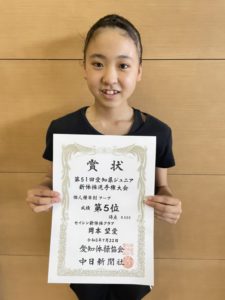 賞状
第51回愛知県ジュニア
新体操選手権大会
個人種目別 フープ
成績 第5位
得点
セイシン新体操クラブ
岡本 望愛
令和5年7月22日
愛知体操協会
中日新聞社